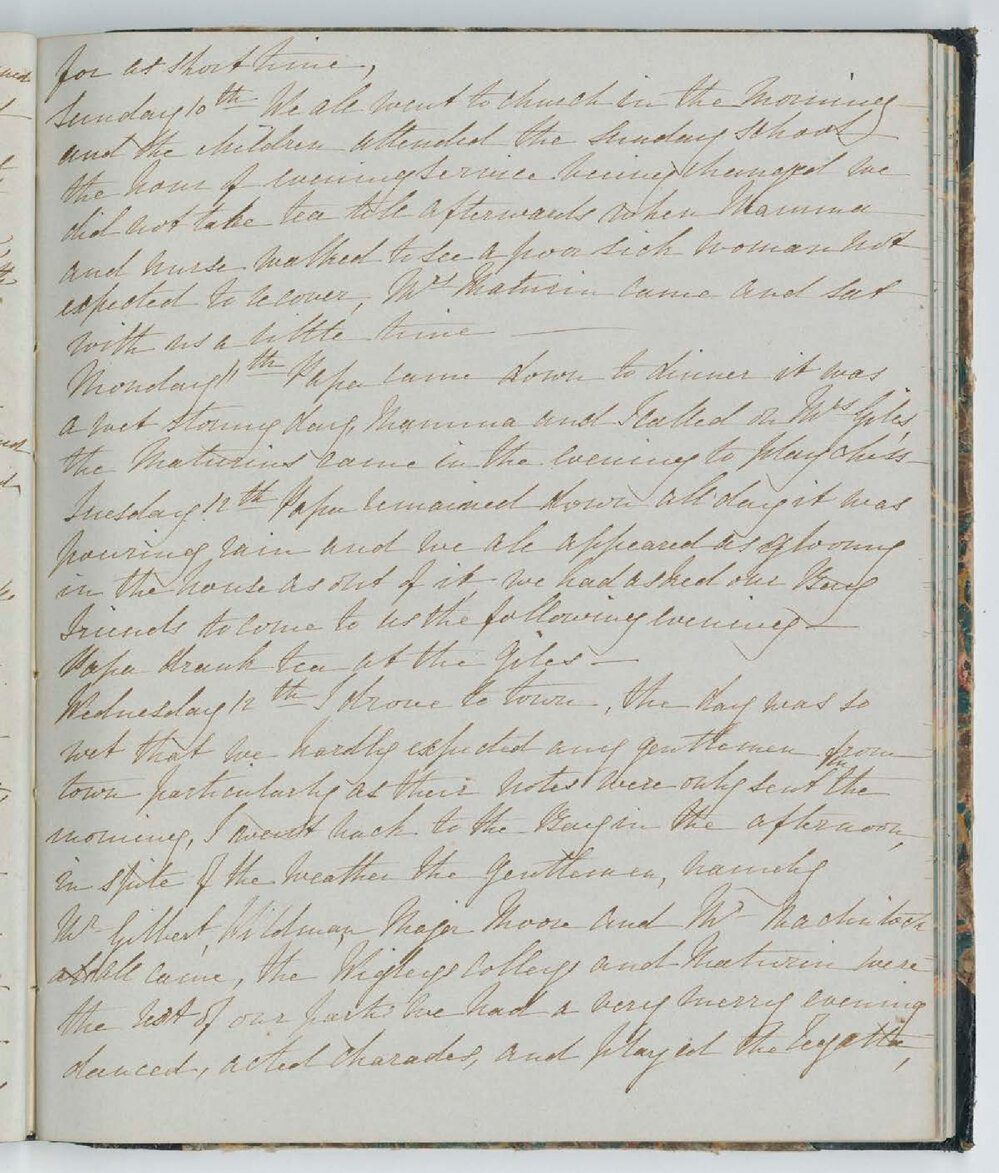 for as short time,
Sunday 10th We all went to church in the Morning
and the children attended the Sunday school
the hour of evening service being changed we
did not take tea till afterwards when Mamma
and nurse walked to see a poor sick woman not
expected to recover, Mrs Maturin came and sat
with us a little time —
Monday 11th Papa came down to dinner it was
a wet stormy day, Mamma and I called on Mrs Giles
the Maturins came in the evening to play chess
Tuesday 12th Papa remained down all day it was
pouring rain and we all appeared as gloomy
in the house as out of it, we had asked our Bay
Friends to come to us the following evening —
Papa drank tea at the Giles —
Wednesday 12th I drove to town, the day was so
wet that we hardly expected any gentlemen from
town particularly as their notes were only sent the
morning, I went back to the Bay in the afternoon,
in spite of the weather the gentlemen, namely
Mr Gilbert, Wildman, Major Moore and Mr
all came, the and Maturin were
the rest of our party we had a very merry evening
danced, acted charades, and played the